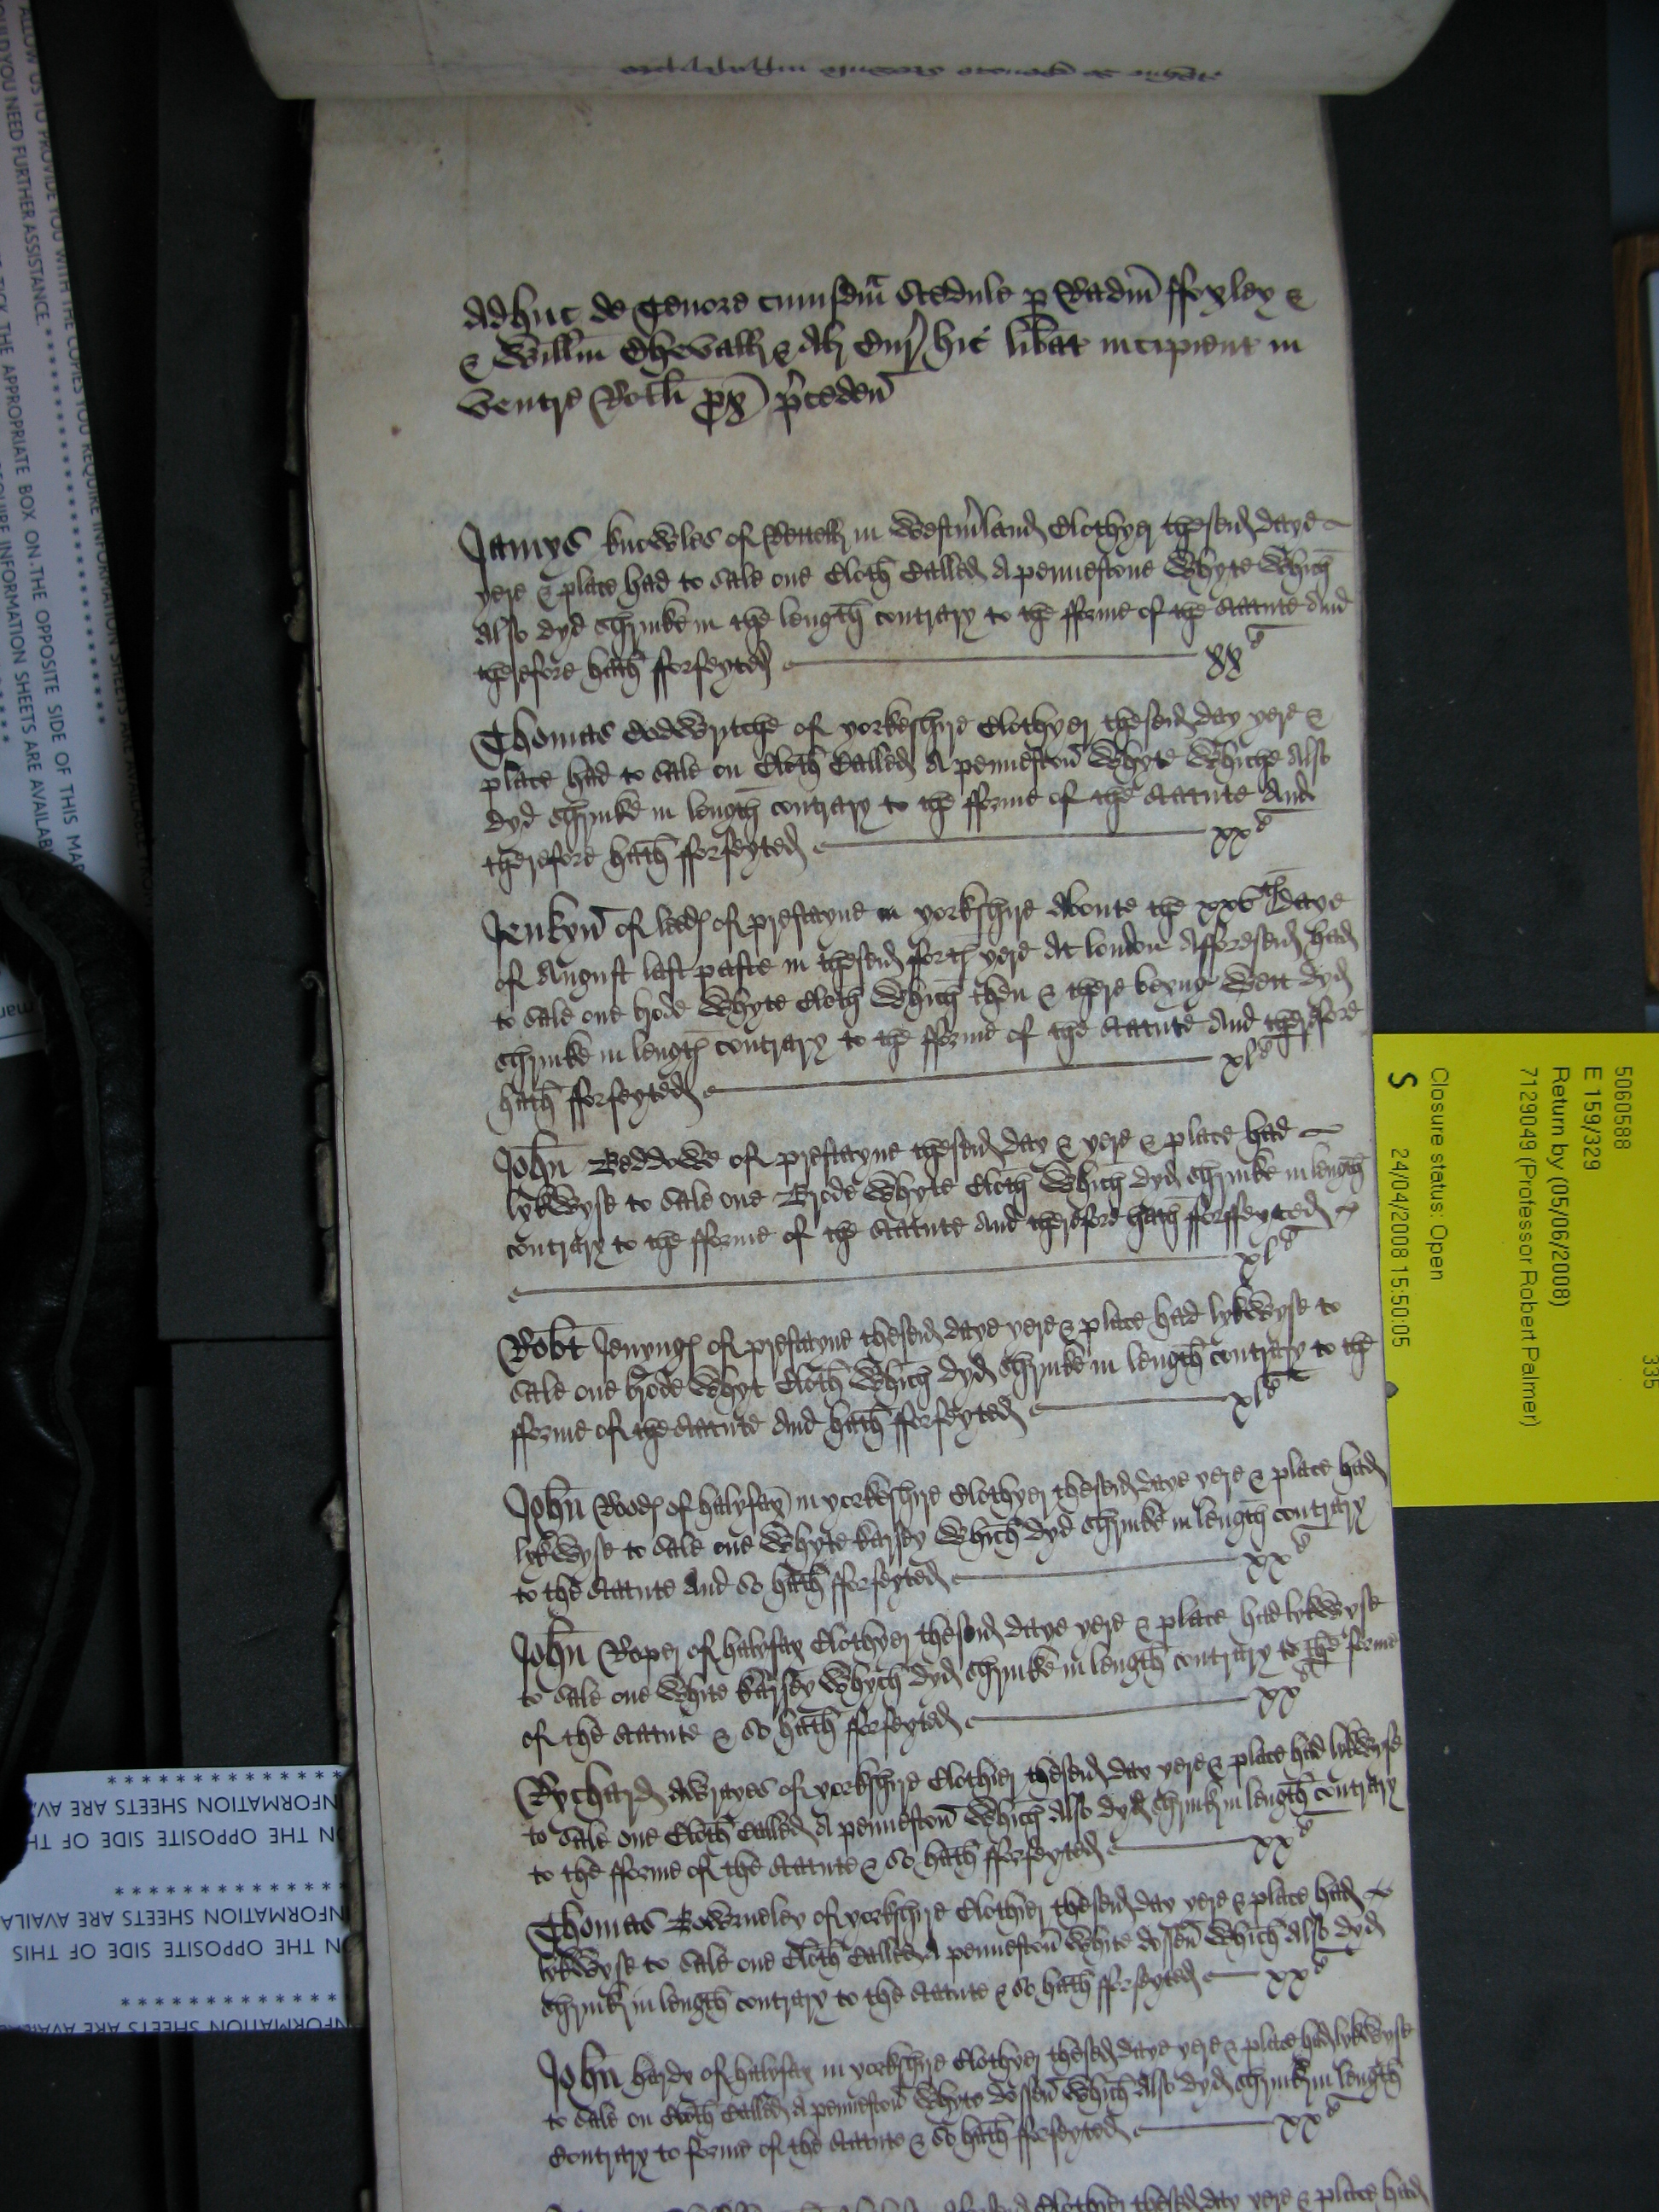 Adhuc de Tenore cuiusdm Scedule p Radm ffoxley &
& Willm Chevall & Al hic libat incipient in
ventre Rotli px pcedeñ
Jamys knowles of in Westmland Clothyer theseid daye
yere & place had to sale one Cloth Called A pennestone Whyte Which
Also dyd Schrinke in the length contrary to the fforme of the Statute And
therefore hath fforfeyted xx d
Thomas of yorkeschyre Clothyer theseid day yere &
place had to sale on Cloth Called A penneston Whyte Whiche Also
dyd Schrinke in length contrary to the fforme of the Statute And
therefore hath fforfeyted xx d
Jenkyn of of prestayne in yorkschyre Aboute the xxv th daye
of August last paste in theseid yere At london Afforeseid had
to sale one brode Whyte Cloth Which then & there beyng Wett dyd
Schrinke in length contrary to the fforme of the Statute And therefore
hath fforfeyted xl d
John Beddowe of prestayne theseid day & yere & place had
lykWyse to sale one Brode Whyte Cloth Which dyd Schrinke in length
contrary to the fforme of the Statute And therefore hath fforffeyted
xl d
Robt Jenyng of prestayne theseid daye yere & place had lykWyse to
sale one brode Whyt Cloth Which dyd Schrinke in length contrary to the
fforme of the Statute And hath fforfeyted xl d
John of halyfax in yorkeschyre Clothyer theseid daye yere & place had
lykWyse to sale one Whyte karsey Which dyd Schrinke in length contrary
to the Statute And so hath fforfeyted xx d
John Roper of halyfax Clothyer theseid daye yere & place had lykWyse
to sale one White karsey Whych dyd Schrinke in length contrary to the forme
of the Statute & so hath fforfeyted xx d
Rychard of yorkschyre Clothier theseid day yere & place had lykWyse
to sale one Cloth Called A penneston Which Also dyd Schrink in length contrary
to the fforme of the Statute & so hath fforfeyted xx d
Thomas of yorkschyre Clothier theseid day yere & place had
lykWyse to sale one Cloth Called A penneston White dossen Which Also dyd
Schrink in length contrary to the Statute & so hath fforfeyted xx d
John hardy of halyfax in yorkschyre Clothyer theseid daye yere & place had lykWyse
to sale on Cloth Called A penneston Whyte dossen Which Also dyd Schrink in length
Contrary to forme of the Statute & so hath fforfeyted xx d
Clothyer theseid day yere & place had
335
5060588
E 159/329
Return by (05/06/2008)
7129049 (Professor Robert Palmer)
Closure status: Open
S 24/04/2008 15:50:05
ALLOW US TO PROVIDE YOU WITH THE COPIES YOU REQUIRE
YOU NEED FURTHER ASSISTANCE.
TICK THE APPROPRIATE BOX ON THE OPPOSITE SIDE OF THIS
INFORMATION SHEETS ARE AVAILABLE
INFORMATION SHEETS ARE
ON THE OPPOSITE SIDE OF TH
INFORMATION SHEETS ARE AVAILA
ON THE OPPOSITE SIDE OF THIS
INFORMATION SHEETS ARE